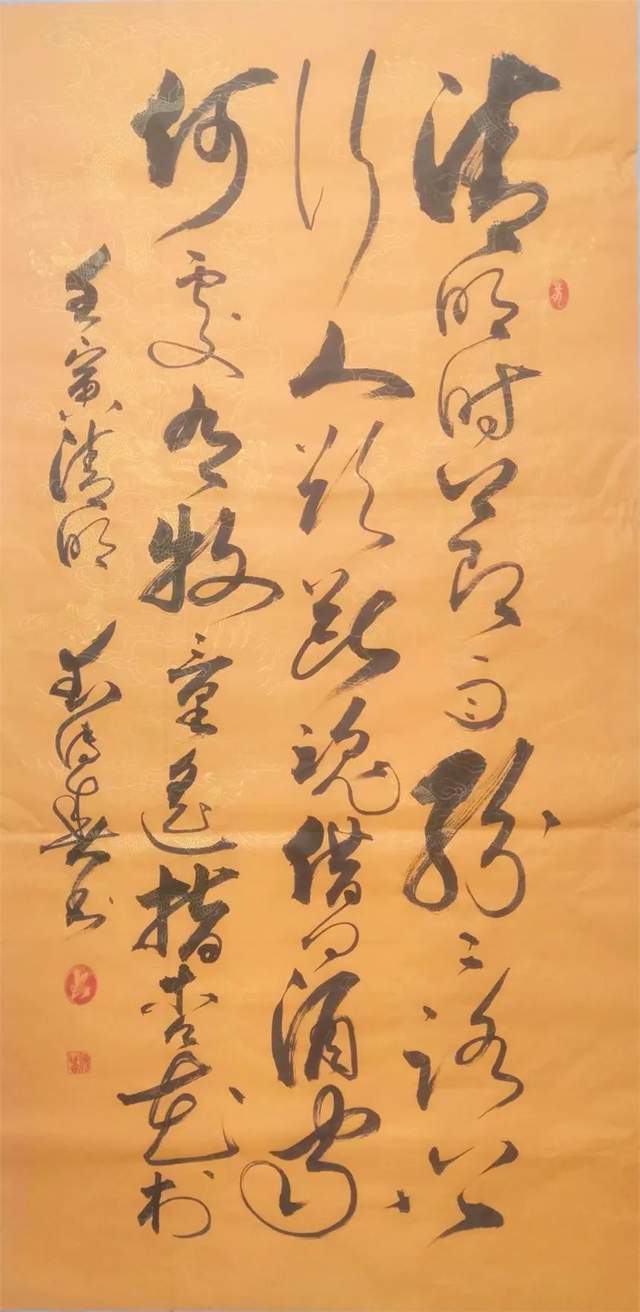 清明时节雨纷纷路上
行人欲断魂借问酒家
何处有牧童遥指杏花村
壬寅清明 春书